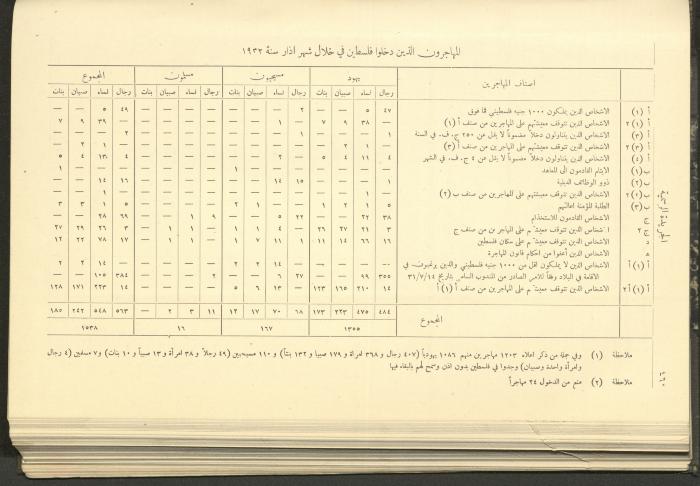 المهاجرون الذين دخلوا فلسطين في خلال شهر اذار سنة ١٩٣٢
اصناف المهاجرين يهود مسيحيون مسلمون المجموع
رجال نساء صبيان بنات رجال نساء صبيان بنات رجال نساء صبيان بنات رجال نساء صبيان بنات
أ (١) الاشخاص الذين يملكون ١٠٠٠ جنيه فلسطيني فما فوق ٤٧ ٥ — — ٢ — — — — — — — ٤٩ ٥ — —
أ (١) ٢ الاشخاص الذين تتوقف معيشتهم على المهاجرين من صنف أ (١) — ٣٨ ٩ ٧ — ١ — — — — — — — ٣٩ ٩ ٧
أ (٣) الاشخاص الذين يتناولون دخلاً مضموناً لا يقل عن ٢٥٠ ج. ف. في السنة ١ — — — ١ — — — — — — — ٢ — — —
أ (٣) ٢ الاشخاص الذين تتوقف معيشتهم على المهاجرين من صنف أ (٣) — ١ ٢ — — — — — — — — — — ١ ٢ —
أ (٤) الاشخاص الذين يتناولون دخلاً مضموناً لا يقل عن ٤ ج. ف. في الشهر ٤ ١١ ٤ ٥ — ٢ — — — — — — ٤ ١٣ ٤ ٥
ب (١) الايتام القادمون الى المعاهد — — — — — — — ١ — — — — — — — ١
ب (٢) ذوو الوظائف الدينية ١ — — — ١٥ ١٤ — — — — — — ١٦ ١٤ — —
ب (٢) ٢ الاشخاص الذين تتوقف معيشتهم على المهاجرين من صنف ب (٢) — ١ — — — — — — — — — — — ١ — —
ب (٣) الطلبة المؤمنة اعالتهم ٥ ١ ٢ ١ — — ١ ٢ — — — — ٥ ١ ٣ ٣
ج الاشخاص القادمون للاستخدام ٣٨ ٢٢ — — ٢٢ ٥ — — ٩ ١ — — ٦٩ ٢٨ — —
ج ٢ الاشخاص الذين تتوقف معيشتهم على المهاجرين من صنف ج ٣ ٢١ ٢٧ ٢٦ — ٥ ١ ١ — — ١ — ٣ ٢٦ ٢٩ ٢٧
د الاشخاص الذين تتوقف معيشتهم على سكان فلسطين ١٦ ٦٦ ١٤ ١١ ١ ١١ ٧ ١ — ١ ١ — ١٧ ٧٨ ٢٢ ١٢
ه الاشخاص الذين أعفوا من احكام قانون المهاجرة — — — — — ١٤ ٢ ٢ — — — — — ١٤ ٢ ٢
أ (١) أ الاشخاص الذين لا يملكون اقل من ١٠٠٠ جنيه فلسطيني والذين يرغبون في
الاقامة في البلاد وفقاً للامر الصادر من المندوب السامي بتاريخ ٣١/٧/١٤ ٣٥٥ ٩٩ — — ٢٧ ٦ — — ٢ — — — ٣٨٤ ١٠٥ — —
أ (١) أ ٢ الاشخاص الذين تتوقف معيشتهم على المهاجرين من صنف أ (١) أ ١٤ ٢١٠ ١٦٥ ١٢٣ — ١٣ ٦ ٥ — — — — ١٤ ٢٢٣ ١٧١ ١٢٨
المجموع ٤٨٤ ٤٧٥ ٢٢٣ ١٧٣ ٦٨ ٧٠ ١٧ ١٢ ١١ ٣ ٢ — ٥٦٣ ٥٤٨ ٢٤٢ ١٨٥
١٣٥٥ ١٦٧ ١٦ ١٥٣٨
ملاحظة (١) وفي جملة من ذكر اعلاه ١٢٠٣ مهاجرين منهم ١٠٨٦ يهودياً (٤٠٧ رجال و ٣٦٨ امراة و ١٧٩ صبيا و ١٣٢ بنتاً) و ١١٠ مسيحيين (٤٩ رجلاً و ٣٨ امرأة و ١٣ صبياً و ١٠ بنات) و ٧ مسلمين (٤ رجال
وامرأة واحدة وصبيان) وجدوا في فلسطين بدون اذن وسمح لهم بالبقاء فيها
ملاحظة (٢) منع من الدخول ٢٤ مهاجراً
الجريدة الرسمية
٤٦٠